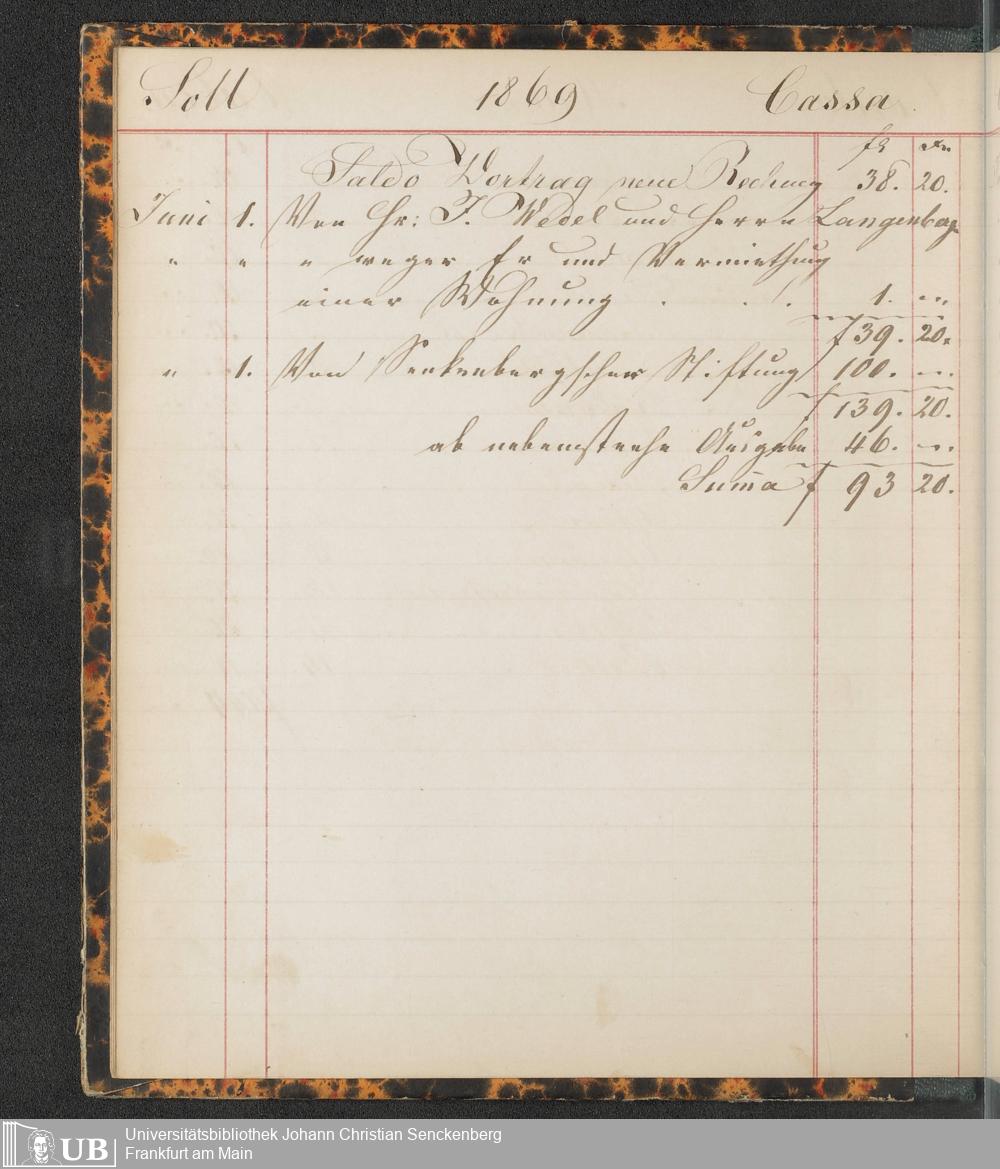 Soll 1869 Cassa.
Saldo Vortrag neue Rechnung 38. 20.
Juni 1. Von Hr: F. Wedel und Herrn
" " " wegen Er und Vermiethung
einer Wohnung . . . 1. "
f 39. 20.
" 1. Von Senkenbergscher Stiftung 100. "
f 139. 20.
ab nebenstehe Ausgabe 46. "
Suma f 93 20.
UB
Universitätsbibliothek Johann Christian Senckenberg
Frankfurt am Main